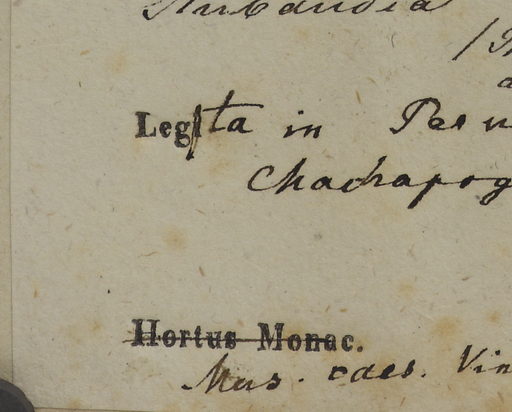 Legita in Peru
Chachapog
Hortus Monac.
Mus. caes. Vin